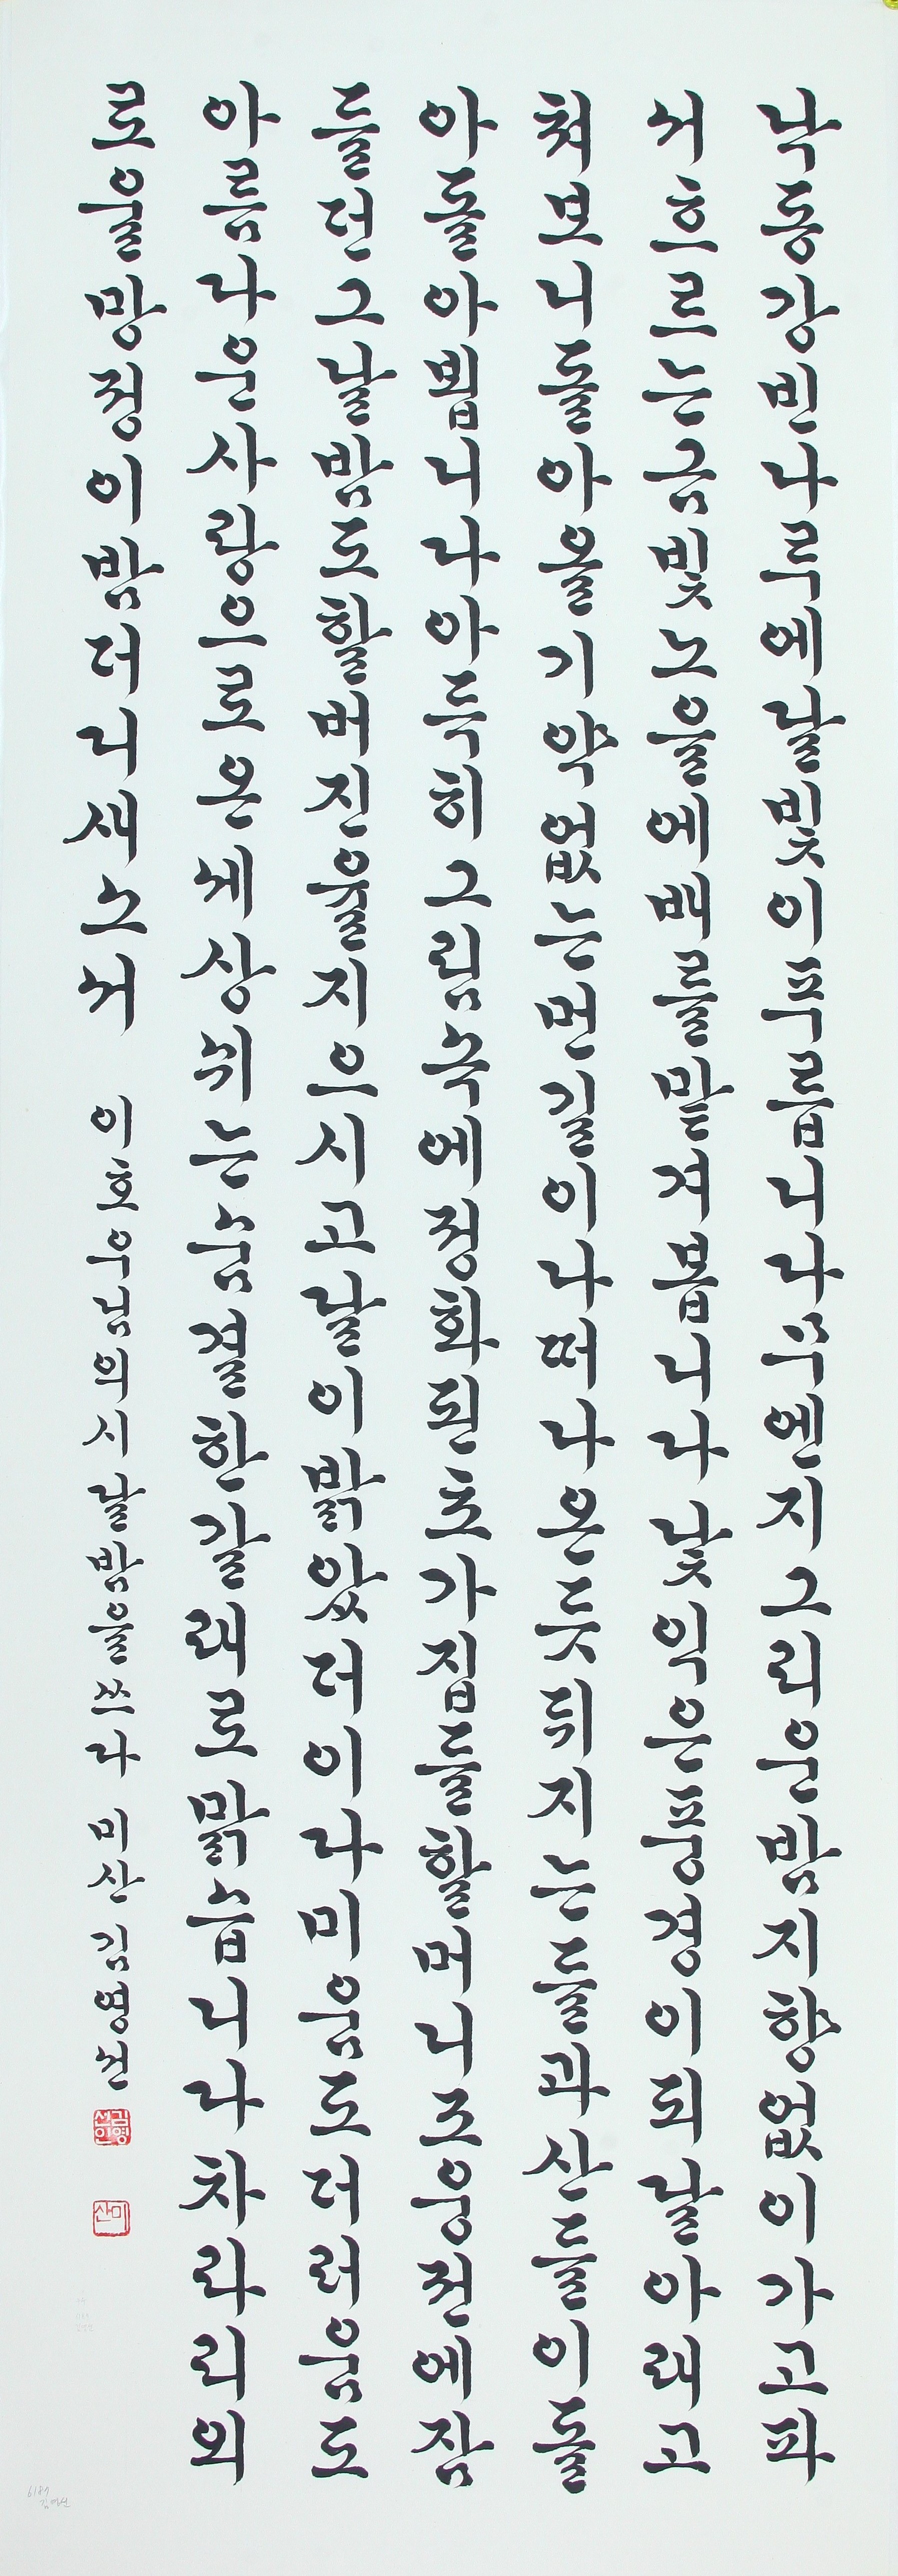 낙동강빈나루에달빛이푸릅니다무엔지그리운밤지향없이가고파
서흐르는금빛노을에배를맡겨봅니다낯익은풍경이되달아래고
쳐보니돌아올기약없는먼길이나떠나온듯뒤지는들과산들이돌
아돌아뵙니다아득히그림속에정화된초가집들할머니조웅전에잠
들던그날밤도할버진율지으시고달이밝았더이다미움도더러움도
아름다운사랑으로온세상쉬는숨결한갈래로맑습니다차라리외
로울망정이밤더디새소서 이호우님의시달밤을쓰다 미산 김영선
김영선인
미산